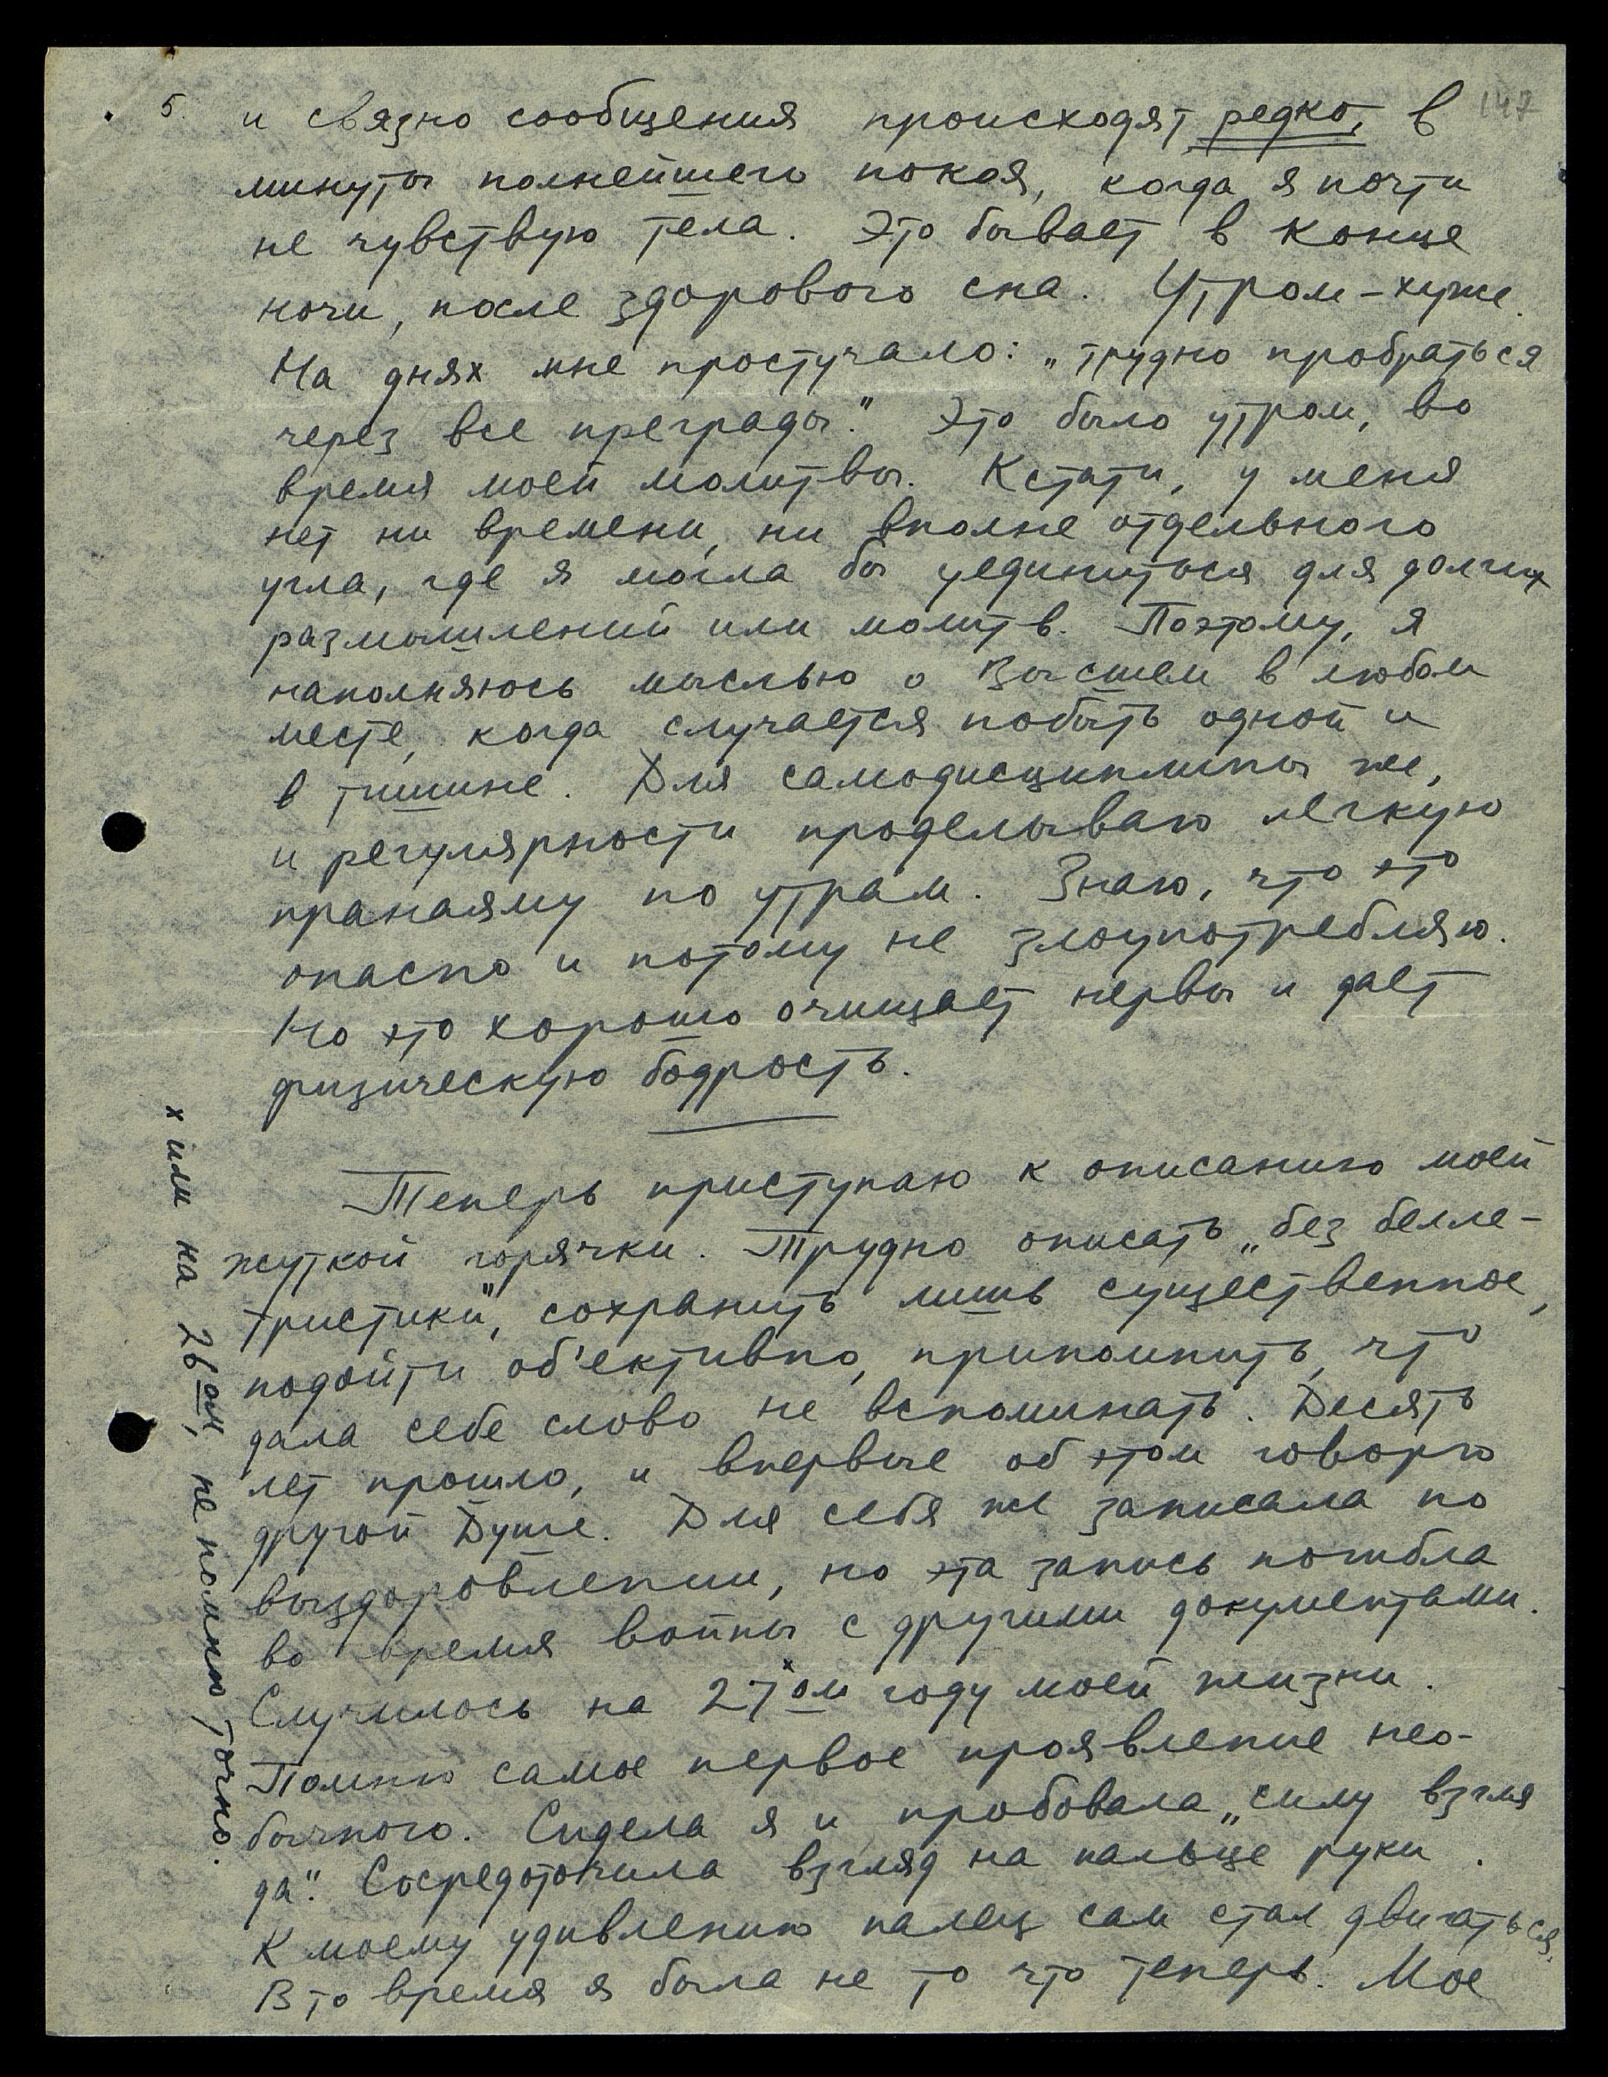 5. и связно сообщения происходят редко, в 147
минуты полнейшего покоя, когда я почти
не чувствую тела. Это бывает в конце
ночи, после здорового сна. Утром – хуже.
На днях мне простучало: „трудно пробраться
через все преграды." Это было утром, во
время моей молитвы. Кстати, у меня
нет ни времени, ни вполне отдельного
угла, где я могла бы уединиться для долгих
размышлений или молитв. Поэтому, я
наполняюсь мыслью о Высшем в любом
месте, когда случается побыть одной и
в тишине. Для самодисциплины же,
и регулярности проделываю легкую
пранаяму по утрам. Знаю, что это
опасно и потому не злоупотребляю.
Но это хорошо очищает нервы и дает
физическую бодрость.
Теперь приступаю к описанию моей
жуткой горячки. Трудно описать „без белле-
тристики", сохранить лишь существенное,
подойти об'ективно, припомнить, что
дала себе слово не вспоминать. Десять
лет прошло, и впервые об этом говорю
другой Душе. Для себя же записала по
выздоровлении, но эта запись погибла
во время войны с другими документами.
Случилось на 27ом x году моей жизни.
Помню самое первое проявление нео-
бычного. Сидела я и пробовала „силу взгля
да". Сосредоточила взгляд на пальце руки.
К моему удивлению палец сам стал двигаться.
В то время я была не то что теперь. Мое
x или на 26ом, не помню точно.